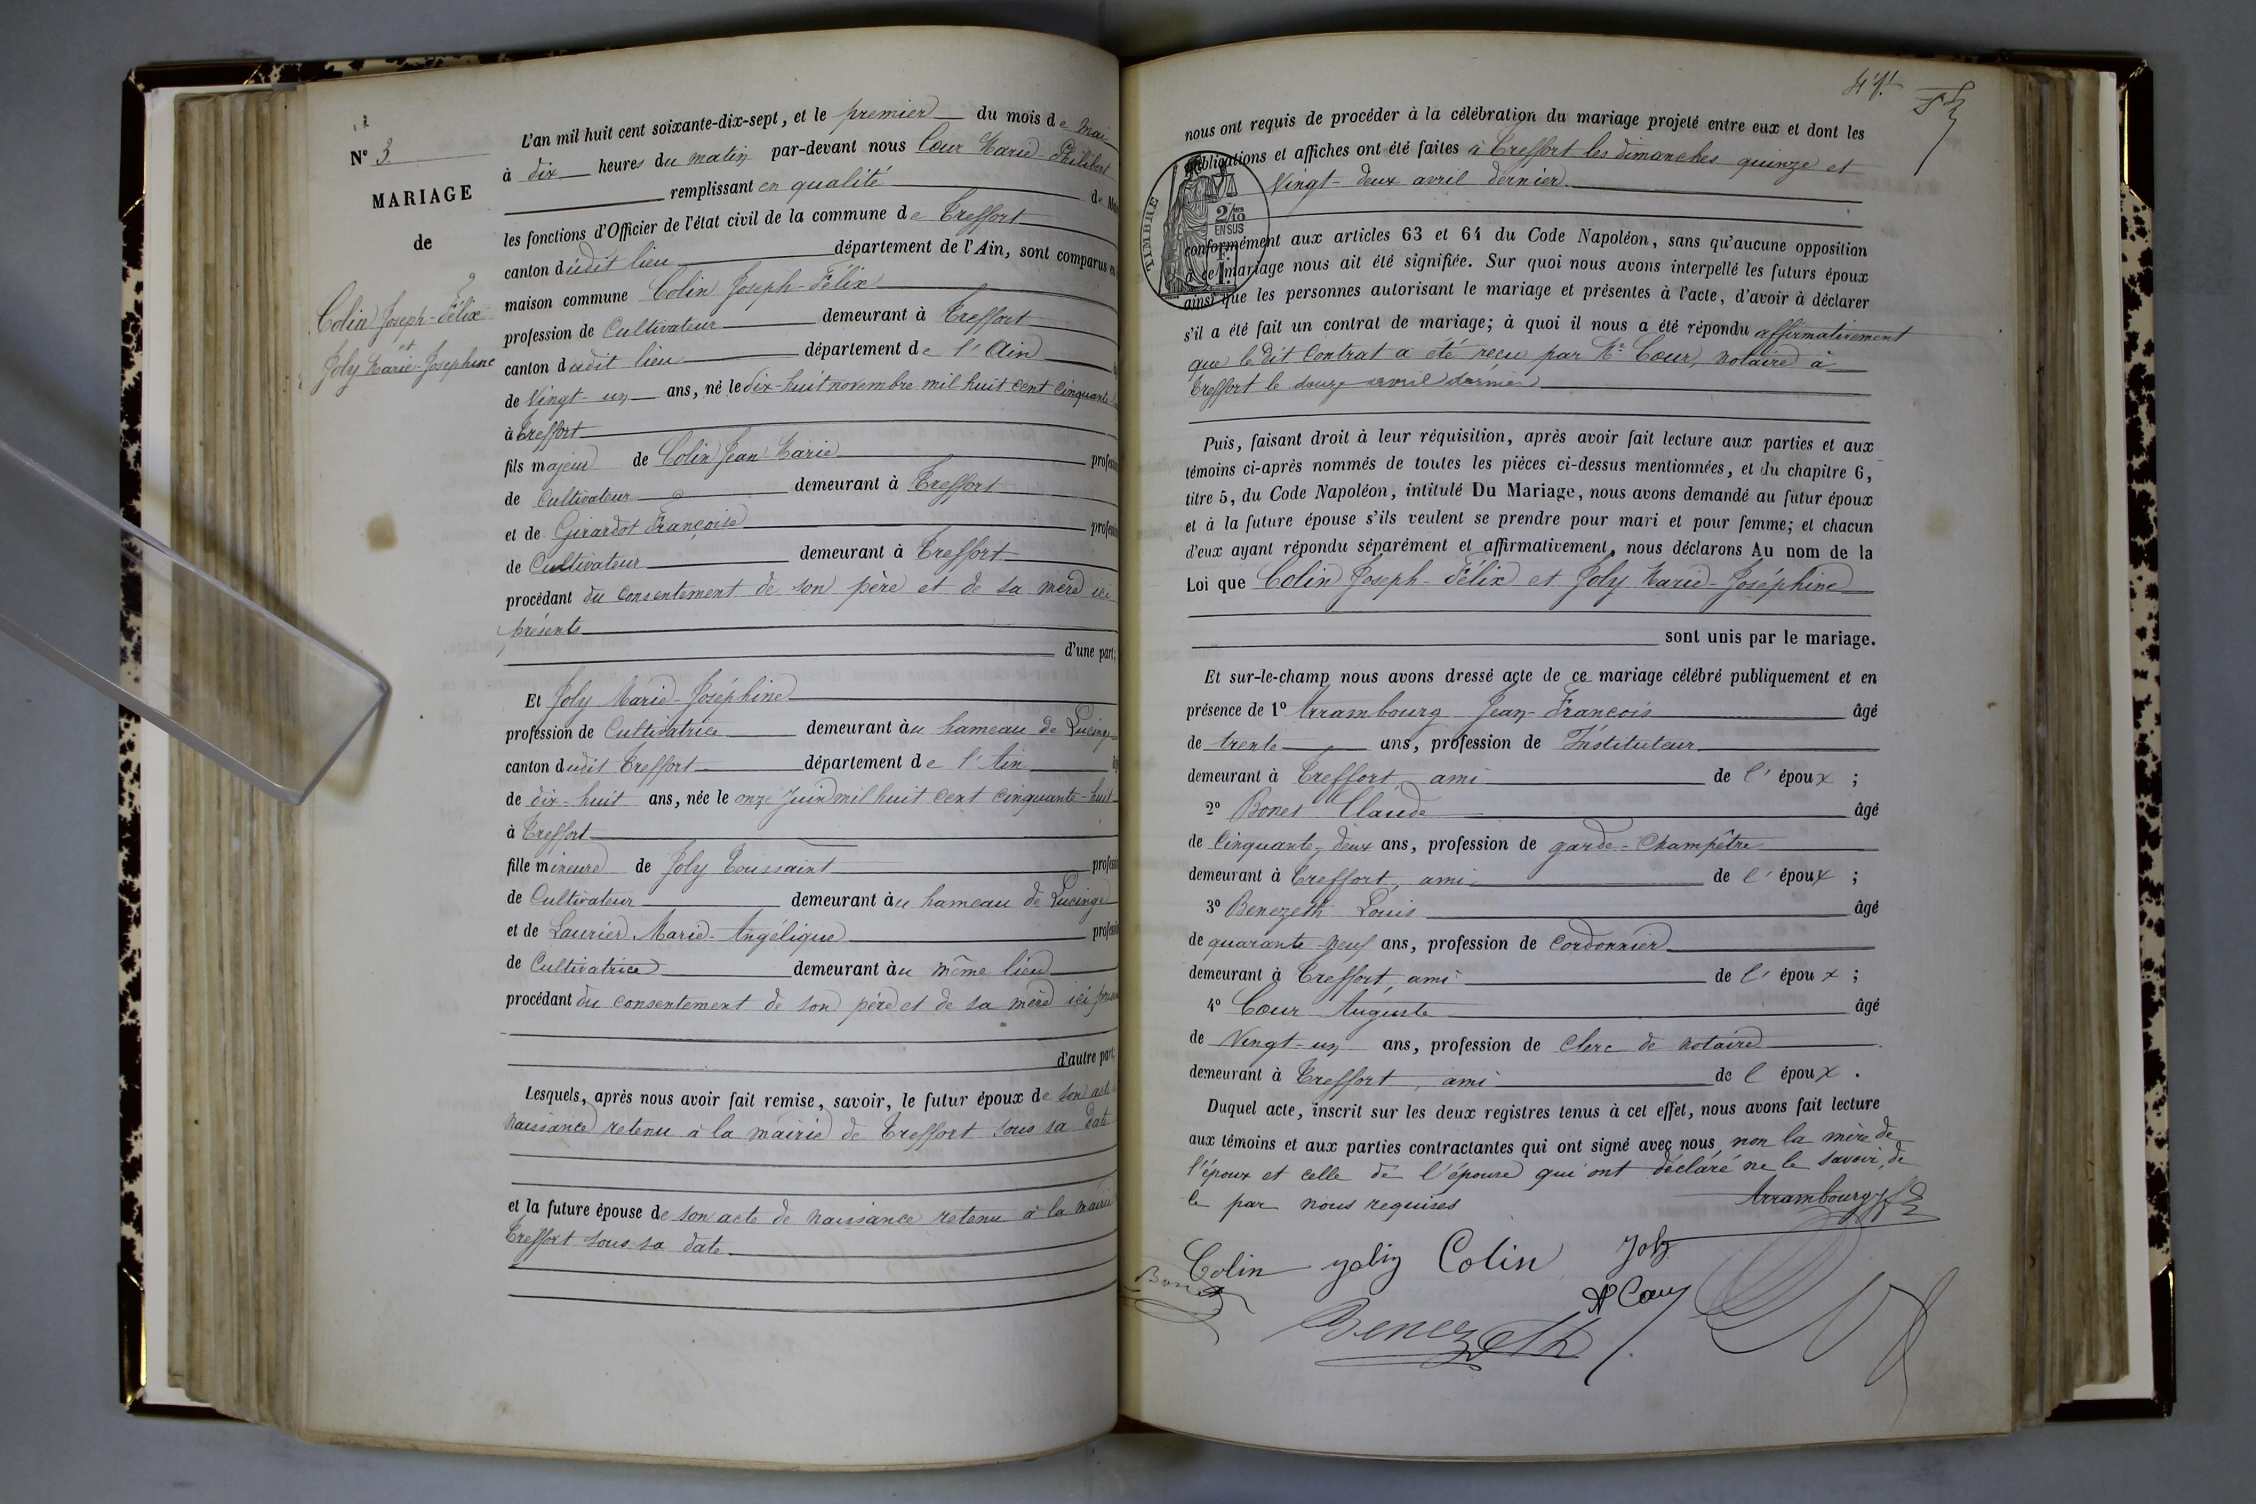 Nº 3
MARIAGE
de
Colin Joseph-Félix
et
Joly Marie-Josephine
L'an mil huit cent soixante-dix-sept, et le premier du mois de Mai
à dix heures du matin par-devant nous Cœur Marie-Philibert
remplissant en qualité de
les fonctions d'Officier de l'état civil de la commune de Treffort
canton dudit lieu département de l'Ain, sont comparus en
maison commune Colin Joseph-Félix
profession de Cultivateur demeurant à Treffort
canton dudit lieu département de l'Ain
de Vingt-un ans, né le dix-huit novembre mil huit cent cinquante
à Treffort
fils majeur de Colin Jean Marie
de Cultivateur demeurant à Treffort
et de Girardot Françoise
de Cultivateur demeurant à Treffort
procédant du consentement de son père et de sa mère ici
présents
d'une part;
Et Joly Marie-Joséphine
profession de Cultivatrice demeurant au hameau de Lucinge
canton dudit Treffort département de l'Ain
de dix-huit ans, née le onze Juin mil huit cent cinquante-huit
à Treffort
fille mineure de Joly Toussaint
de Cultivateur demeurant au hameau de Lucinge
et de Laurier Marie-Angélique
de Cultivatrice demeurant au même lieu
procédant du consentement de son père et de sa mère ici
d'autre part
Lesquels, après nous avoir fait remise, savoir, le futur époux de son acte
naissance retenu à la mairie de Treffort sous sa date
et la future épouse de son acte de naissance retenu à la mairie
Treffort sous sa date
nous ont requis de procéder à la célébration du mariage projeté entre eux et dont les
publications et affiches ont été faites à Treffort les dimanches quinze et
Vingt-deux avril dernier
TIMBRE
2/10
EN SUS
conformément aux articles 63 et 64 du Code Napoléon, sans qu'aucune opposition
à ce mariage nous ait été signifiée. Sur quoi nous avons interpellé les futurs époux
ainsi que les personnes autorisant le mariage et présentes à l'acte, d'avoir à déclarer
s'il a été fait un contrat de mariage; à quoi il nous a été répondu affirmativement
que le dit Contrat a été reçu par Me Cœur, notaire à
Treffort le douze avril dernier
Puis, faisant droit à leur réquisition, après avoir fait lecture aux parties et aux
témoins ci-après nommés de toutes les pièces ci-dessus mentionnées, et du chapitre 6,
titre 5, du Code Napoléon, intitulé Du Mariage, nous avons demandé au futur époux
et à la future épouse s'ils veulent se prendre pour mari et pour femme; et chacun
d'eux ayant répondu séparément et affirmativement, nous déclarons Au nom de la
Loi que Colin Joseph-Félix et Joly Marie-Joséphine
sont unis par le mariage.
Et sur-le-champ nous avons dressé acte de ce mariage célébré publiquement et en
présence de 1º Arrambourg Jean-François âgé
de trente ans, profession de Instituteur
demeurant à Treffort, ami de l'époux ;
2º Bonet Claude âgé
de Cinquante-deux ans, profession de garde-Champêtre
demeurant à Treffort, ami de l'époux ;
3º Benezeth Louis âgé
de quarante-neuf ans, profession de Cordonnier
demeurant à Treffort, ami de l'époux ;
4º Cœur Auguste âgé
de Vingt-un ans, profession de Clerc de notaire
demeurant à Treffort, ami de l époux .
Duquel acte, inscrit sur les deux registres tenus à cet effet, nous avons fait lecture
aux témoins et aux parties contractantes qui ont signé avec nous non la mère de
l'époux et celle de l'épouse qui ont déclaré ne le savoir, de
le par nous requises
Arrambourg
Colin Joly Colin Joly
Bonet
A Cœur
Benezeth